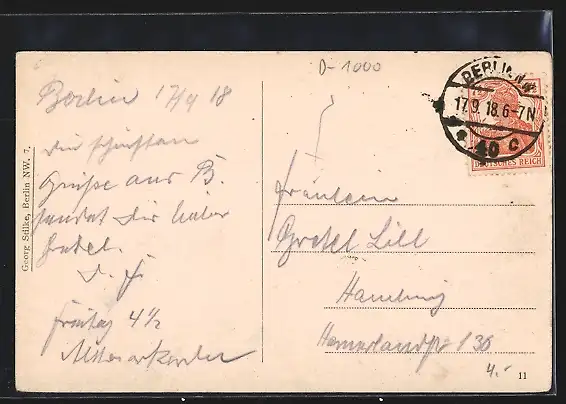 D-1000
Berlin 17/9 18
Die schönsten
Grüße aus B.
sendet Dir lieber
Freitag 4½
Georg Stilke, Berlin NW. 7.
BERLIN NW
17.9.18.6-7N
* 40 c
DEUTSCHES REICH
Fräulein
Gretel Lill
Hamburg
136
4.-
11